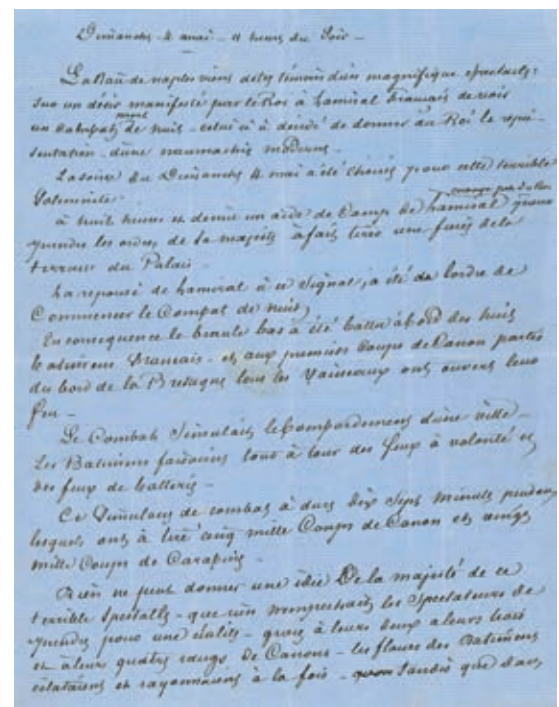 Dimanche 4 mai - 11 heures du Soir -
La Baie de naples viens d'etre témoin d'un magnifique Spectacle;
Sur un désir manifesté par le Roi à Lamiral Français de voir
un Combat de nuit - celui ci à décidé de donner au Roi la repré-
sentation d'une naumachie moderne.
La soirée du Dimanche 4 mai a été choisis pour cette terrible
Solemnité.
à huit heures et demie un aide de Camp de Lamiral
prendre les ordres de Sa majesté à fait tirer une fusée de la
terrasse du Palais
La reponse de Lamiral à ce Signal, a été de lordre de
Commencer le Combat de nuit,
En consequence le branle bas a été battu à bord des huit
batiments Français - et aux premiers Coups de Canon partis
du bord de la Bretagne tous les Vaisseaux ont ouvert leur
feu -
Le Combat Simulait le bombardement d'une ville -
Les Batiments faisaient tour à tour des feux à volonté et
des feux de batterie -
Ce Simulacre de combat à duré dix Sept minutes pendant
lesquels ont à tiré cinq mille Coups de Canon et
mille Coups de
Rien ne peut donner une idée De la majesté de ce
terrible Spectacle - que rien les Spectateurs de
prendre pour une réalité - grace à leurs deux a leurs trois
et a leurs quatre rangs de Canons - les flancs des Batiments
éclataient et rayonnaient à la fois - tandis que dans